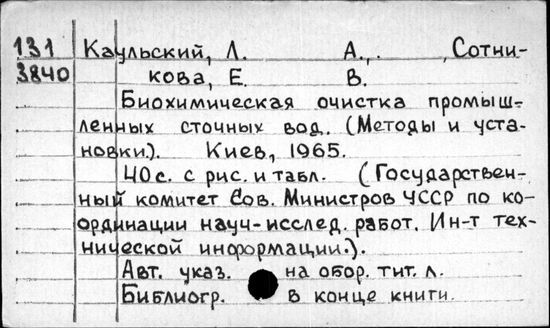 131 Каульский, Л. А., , Сотни-
3840 кова, Е. В.
Биохимическая очистка промыш-
ленных сточных вод. (Методы и уста-
новки.). Киев, 1965.
40 с. с рис. и табл. (Государствен-
ный комитет Сов. Министров УССР по ко-
ординации науч-исслед. работ. Ин-т тех-
нической информации.).
Авт. указ. на обор. тит. л.
Библиогр. в конце книги.